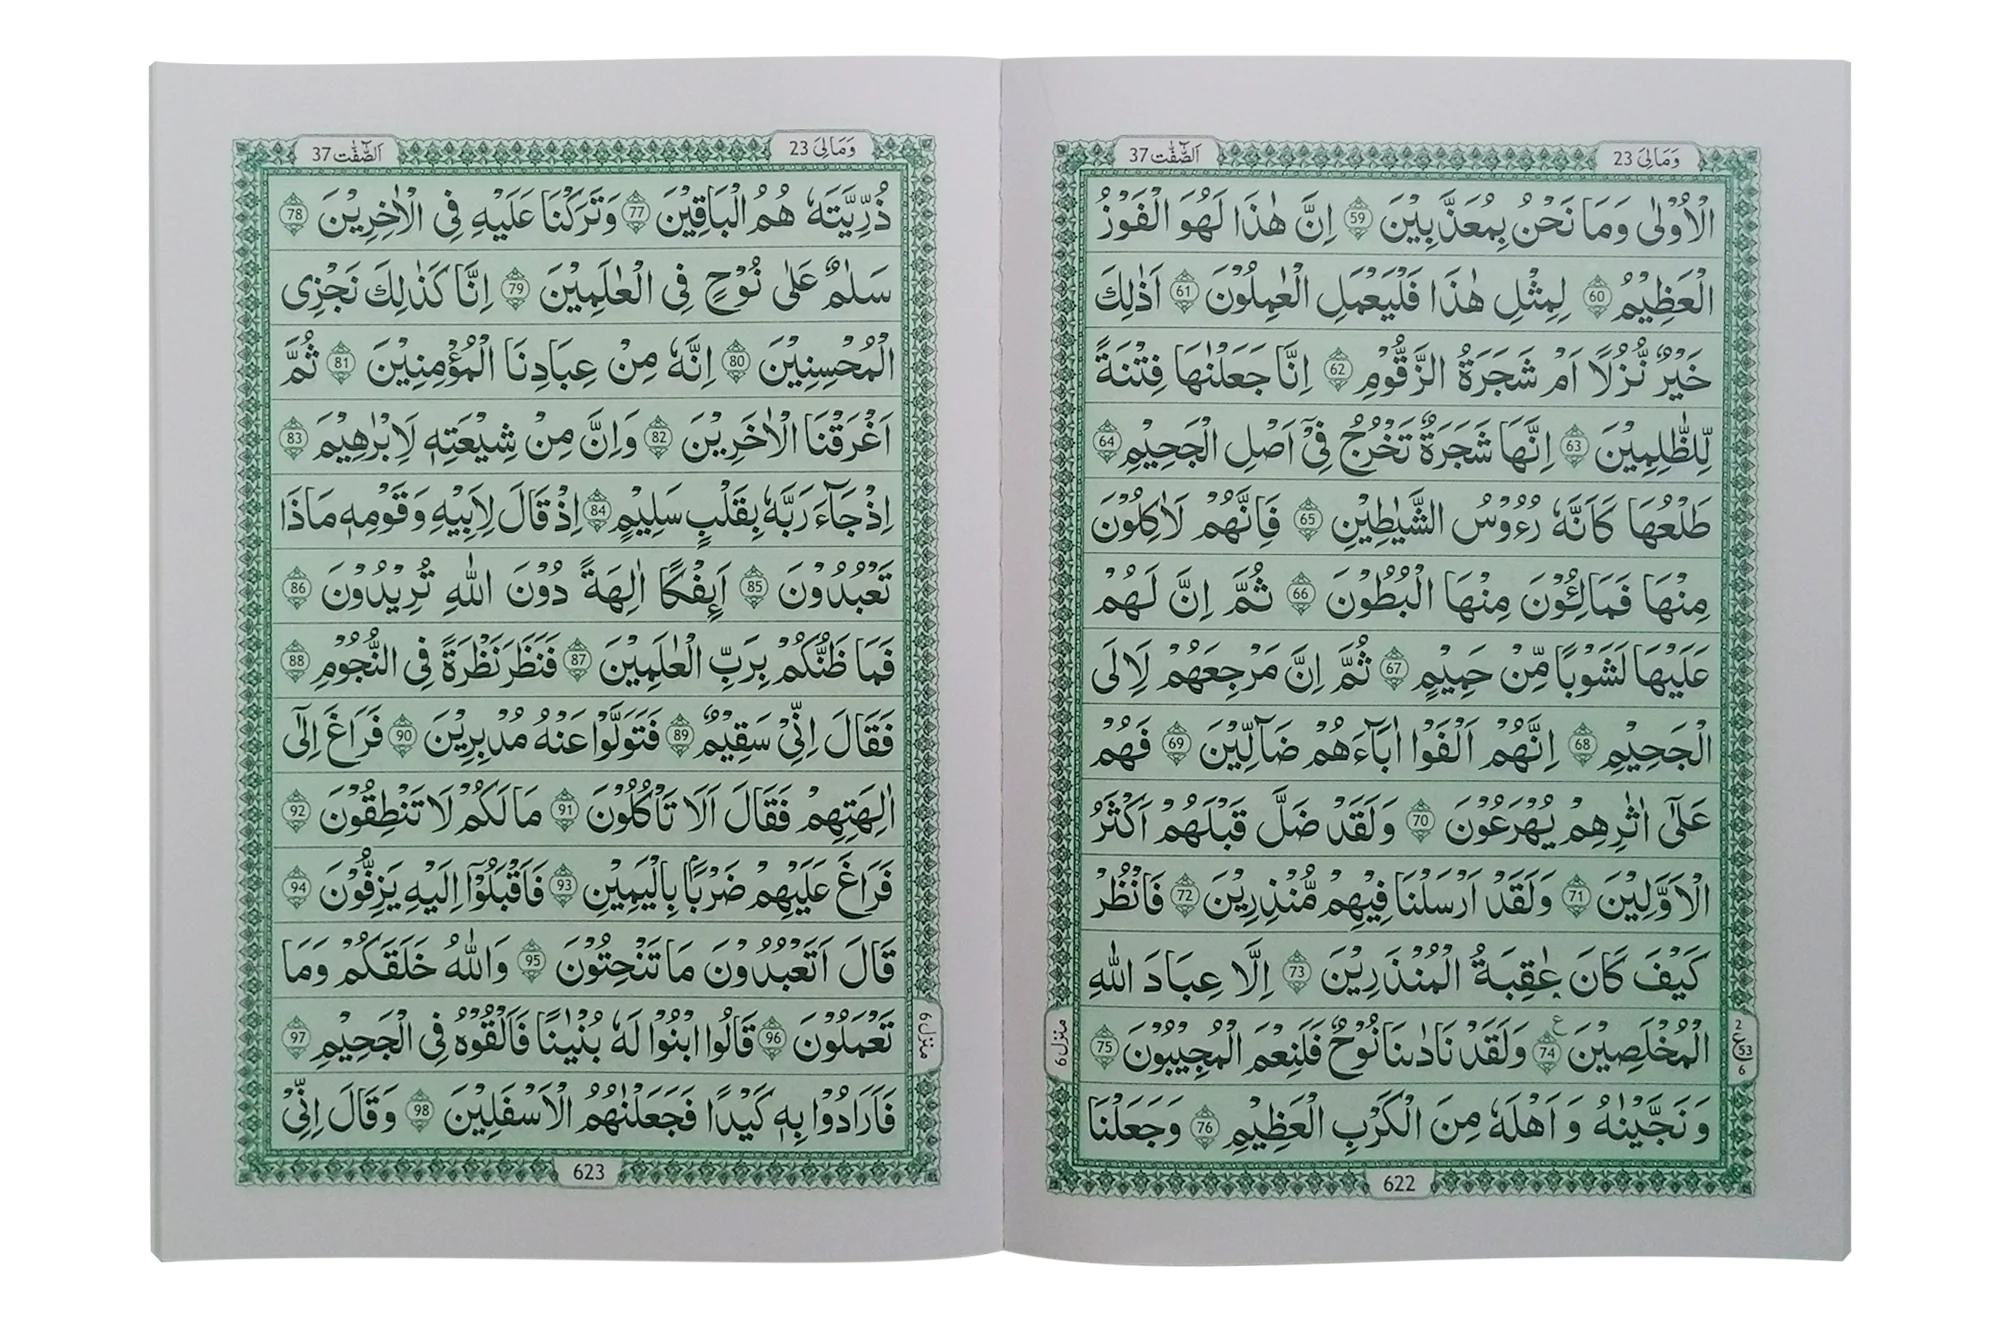 وَمَالِيَ 23
اَلصّٰٓفّٰت 37
الْاُوْلٰى وَمَا نَحْنُ بِمُعَذَّبِيْنَ 59 اِنَّ هٰذَا لَهُوَ الْفَوْزُ
الْعَظِيْمُ 60 لِمِثْلِ هٰذَا فَلْيَعْمَلِ الْعٰمِلُوْنَ 61 اَذٰلِكَ
خَيْرٌ نُّزُلًا اَمْ شَجَرَةُ الزَّقُّوْمِ 62 اِنَّا جَعَلْنٰهَا فِتْنَةً
لِّلظّٰلِمِيْنَ 63 اِنَّهَا شَجَرَةٌ تَخْرُجُ فِيْٓ اَصْلِ الْجَحِيْمِ 64
طَلْعُهَا كَاَنَّهٗ رُءُوْسُ الشَّيٰطِيْنِ 65 فَاِنَّهُمْ لَاٰكِلُوْنَ
مِنْهَا فَمَالِـُٔوْنَ مِنْهَا الْبُطُوْنَ 66 ثُمَّ اِنَّ لَهُمْ
عَلَيْهَا لَشَوْبًا مِّنْ حَمِيْمٍ 67 ثُمَّ اِنَّ مَرْجِعَهُمْ لَاِلَى
الْجَحِيْمِ 68 اِنَّهُمْ اَلْفَوْا اٰبَآءَهُمْ ضَآلِّيْنَ 69 فَهُمْ
عَلٰٓى اٰثٰرِهِمْ يُهْرَعُوْنَ 70 وَلَقَدْ ضَلَّ قَبْلَهُمْ اَكْثَرُ
الْاَوَّلِيْنَ 71 وَلَقَدْ اَرْسَلْنَا فِيْهِمْ مُّنْذِرِيْنَ 72 فَانْظُرْ
كَيْفَ كَانَ عٰقِبَةُ الْمُنْذَرِيْنَ 73 اِلَّا عِبَادَ اللّٰهِ
الْمُخْلَصِيْنَ 74 ع وَلَقَدْ نَادٰىنَا نُوْحٌ فَلَنِعْمَ الْمُجِيْبُوْنَ 75
وَنَجَّيْنٰهُ وَاَهْلَهٗ مِنَ الْكَرْبِ الْعَظِيْمِ 76 وَجَعَلْنَا
2
ع 53
6
منزل 6
622
وَمَالِيَ 23
اَلصّٰٓفّٰت 37
ذُرِّيَّتَهٗ هُمُ الْبَاقِيْنَ 77 وَتَرَكْنَا عَلَيْهِ فِى الْاٰخِرِيْنَ 78
سَلٰمٌ عَلٰى نُوْحٍ فِى الْعٰلَمِيْنَ 79 اِنَّا كَذٰلِكَ نَجْزِى
الْمُحْسِنِيْنَ 80 اِنَّهٗ مِنْ عِبَادِنَا الْمُؤْمِنِيْنَ 81 ثُمَّ
اَغْرَقْنَا الْاٰخَرِيْنَ 82 وَاِنَّ مِنْ شِيْعَتِهٖ لَاِبْرٰهِيْمَ 83
اِذْ جَآءَ رَبَّهٗ بِقَلْبٍ سَلِيْمٍ 84 اِذْ قَالَ لِاَبِيْهِ وَقَوْمِهٖ مَاذَا
تَعْبُدُوْنَ 85 اَئِفْكًا اٰلِهَةً دُوْنَ اللّٰهِ تُرِيْدُوْنَ 86
فَمَا ظَنُّكُمْ بِرَبِّ الْعٰلَمِيْنَ 87 فَنَظَرَ نَظْرَةً فِى النُّجُوْمِ 88
فَقَالَ اِنِّىْ سَقِيْمٌ 89 فَتَوَلَّوْا عَنْهُ مُدْبِرِيْنَ 90 فَرَاغَ اِلٰٓى
اٰلِهَتِهِمْ فَقَالَ اَلَا تَاْكُلُوْنَ 91 مَا لَكُمْ لَا تَنْطِقُوْنَ 92
فَرَاغَ عَلَيْهِمْ ضَرْبًاۢ بِالْيَمِيْنِ 93 فَاَقْبَلُوْٓا اِلَيْهِ يَزِفُّوْنَ 94
قَالَ اَتَعْبُدُوْنَ مَا تَنْحِتُوْنَ 95 وَاللّٰهُ خَلَقَكُمْ وَمَا
تَعْمَلُوْنَ 96 قَالُوا ابْنُوْا لَهٗ بُنْيَانًا فَاَلْقُوْهُ فِى الْجَحِيْمِ 97
فَاَرَادُوْا بِهٖ كَيْدًا فَجَعَلْنٰهُمُ الْاَسْفَلِيْنَ 98 وَقَالَ اِنِّىْ
منزل 6
623